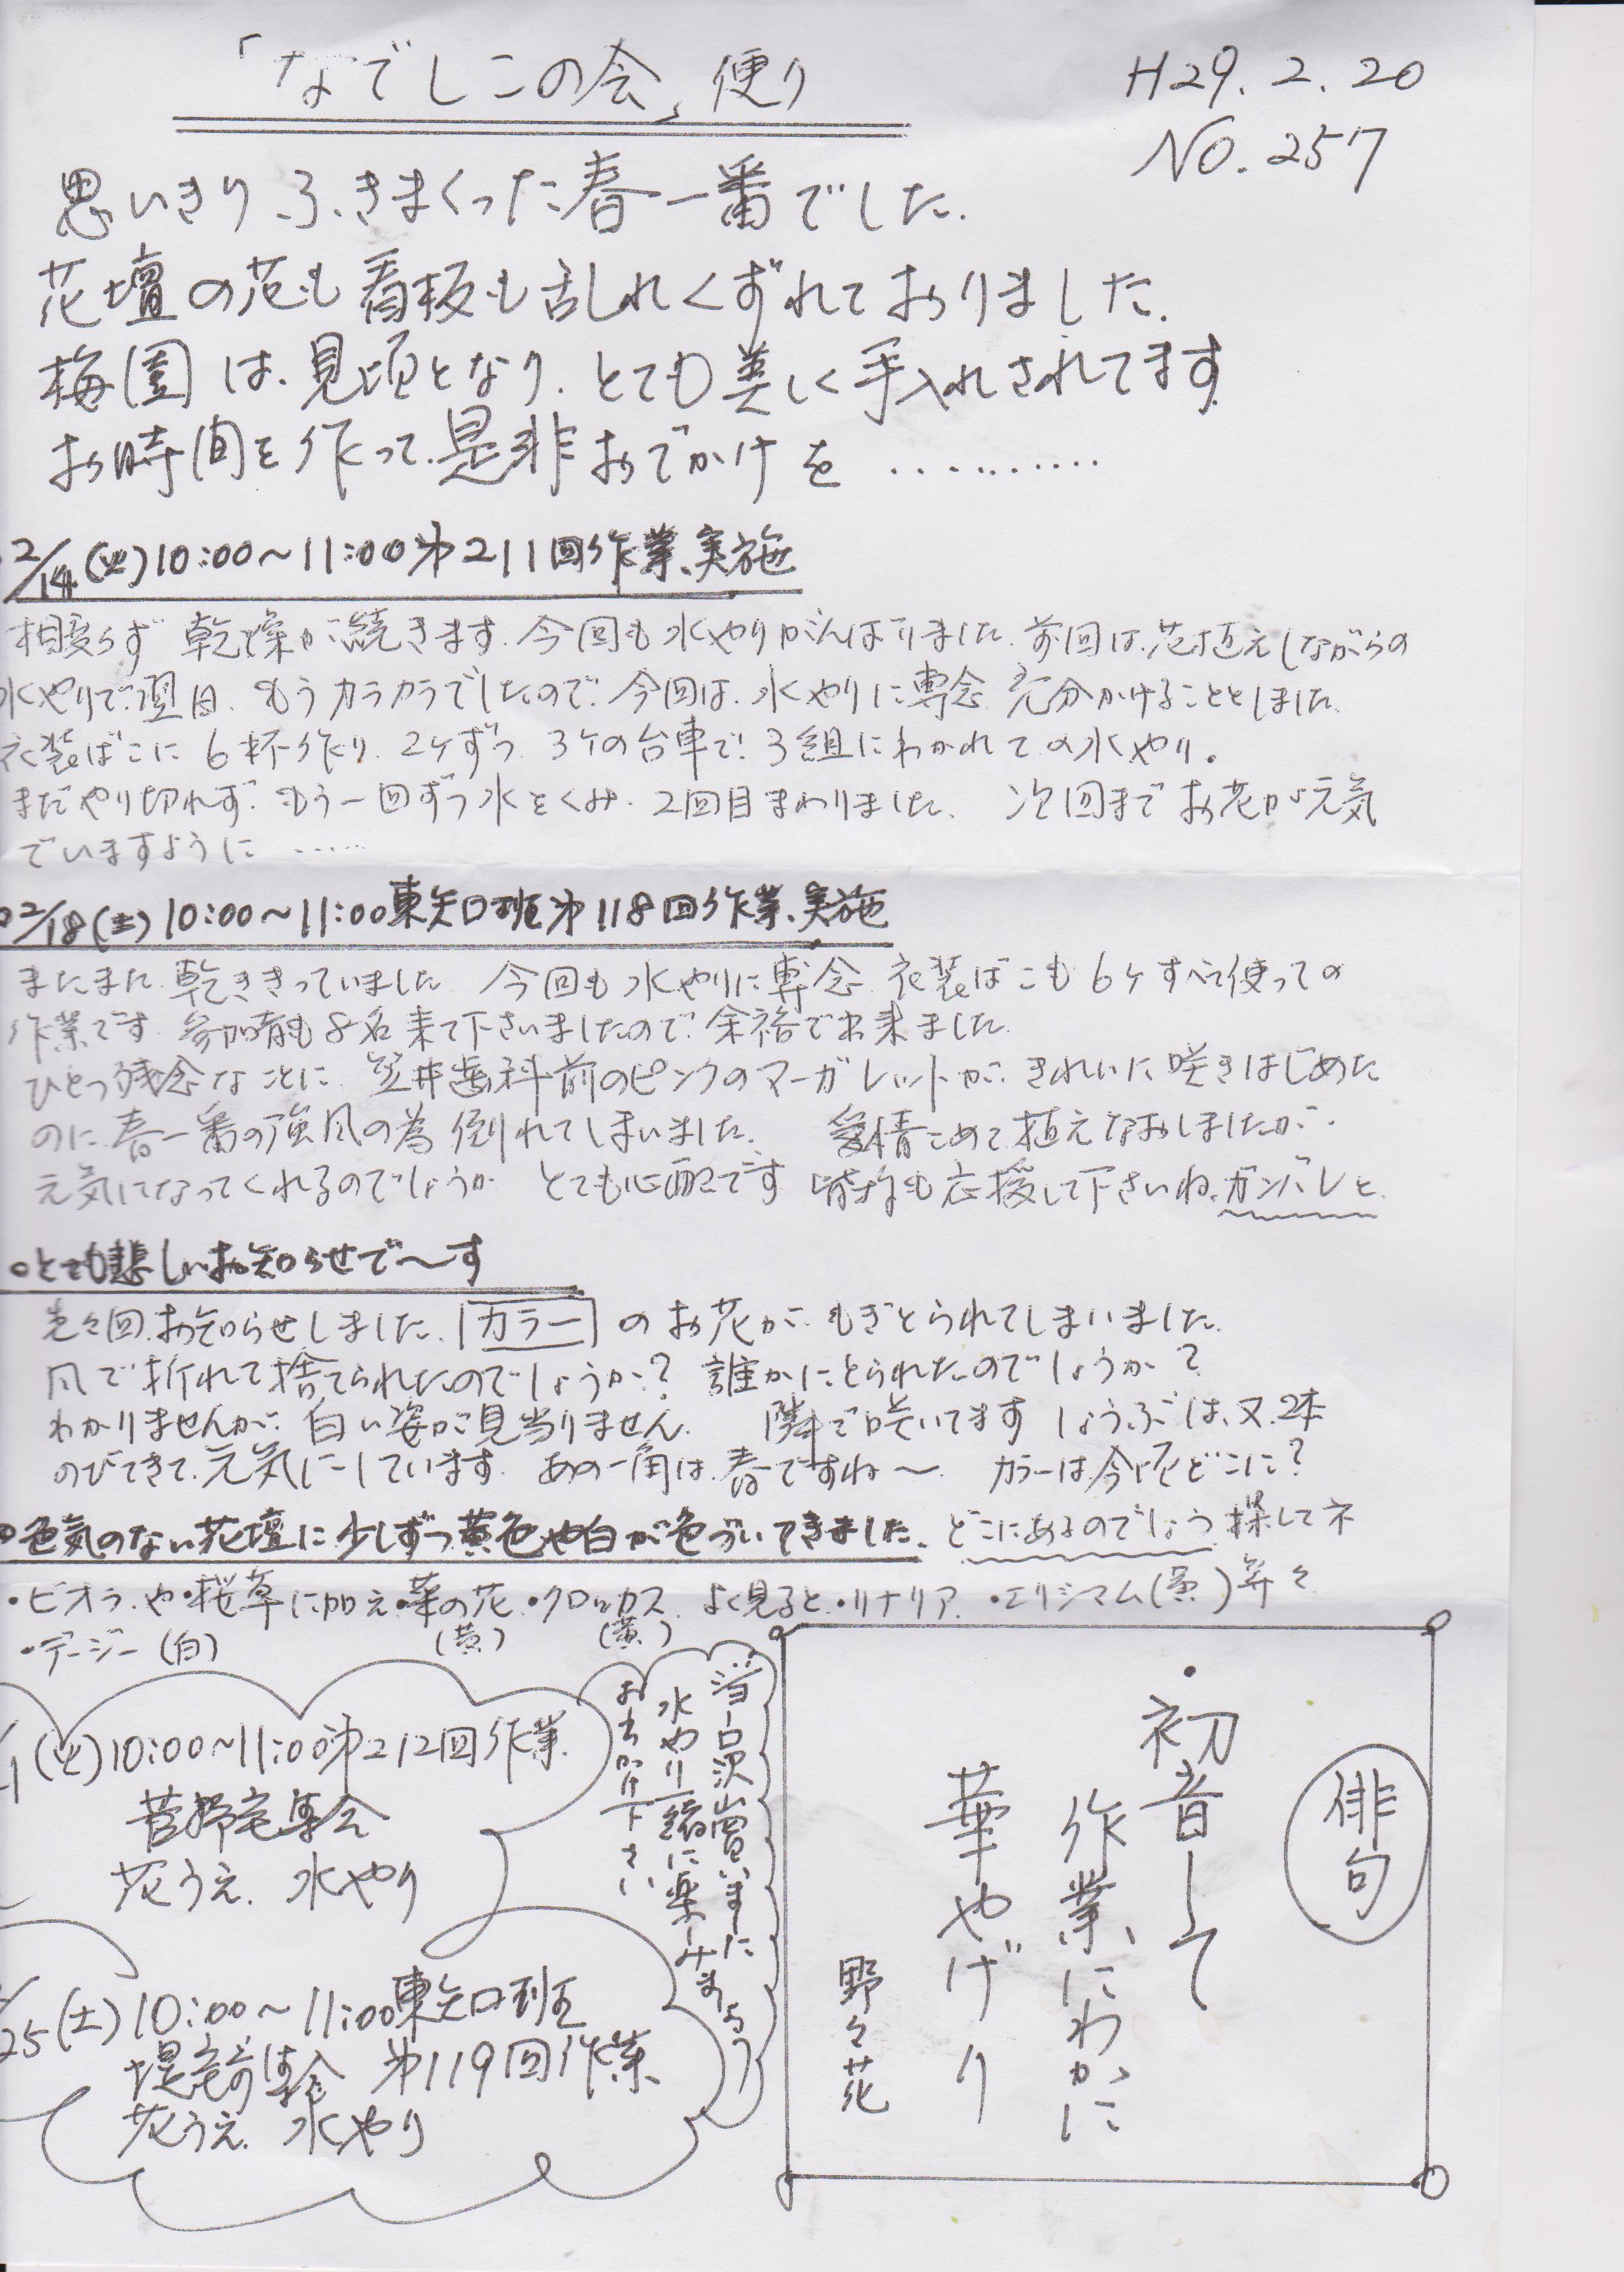 「なでしこの会」便り
H29.2.20
NO.257
思いきりふきまくった春一番でした.
花壇の花も看板も乱れくずれておりました.
梅園は、見頃となり、とても美しく手入れされてます.
お時間を作って、是非おでかけを ‥‥‥‥‥
2/14(火)10:00~11:00 第211回作業、実施
相変らず 乾燥が続きます.今回も水やりがんばりました.前回は、花植えしながらの
水やりで翌日、もうカラカラでしたので、今回は、水やりに専念 充分かけることとしました.
衣装ばこに6杯作り、2ケずつ 3ケの台車で、3組にわかれての水やり。
まだやり切れず、もう一回ずつ水をくみ、2回目まわりました. 次回までお花が元気
でいますように ‥‥‥
○2/18(土)10:00~11:00 東矢口班第118回作業、実施
またまた乾ききっていました 今回も水やりに専念 衣装ばこも6ケすべて使っての
作業です 参加者も8名来て下さいましたので、余裕で出来ました.
ひとつ残念なことに、笠井歯科前のピンクのマーガレットが、きれいに咲きはじめた
のに、春一番の強風の為倒れてしまいました. 愛情こめて植えなおしましたが、
元気になってくれるのでしょうか とても心配です 皆様も応援して下さいね、ガンバレと
○とても悲しいお知らせで〜す
先々回、お知らせしました「カラー」のお花が、もぎとられてしまいました.
風で折れて捨てられたのでしょうか? 誰かにとられたのでしょうか?
わかりませんが、白い姿が見当りません. 隣で咲いてます しょうぶは、又、2本
のびてきて、元気にしています. あの一角は、春ですね〜. カラーは、今頃どこに?
○色気のない花壇に少しずつ黄色や白が色づいてきました、どこにあるのでしょう 探してネ
・ビオラ、や・桜草に加え・菜の花(黄)・クロッカス(黄) よく見ると、・リナリア、・エリシマム(黄)等々
・デージー(白)
(火)10:00~11:00 第212回作業
菅野宅集合
花うえ、水やり
25(土)10:00~11:00 東矢口班
堤崎宅集合 第119回作業
花うえ、水やり
水やり一緒に楽しみましょう
おでかけ下さい
俳句
・初音して
作業、にわかに
華やげり
野々花